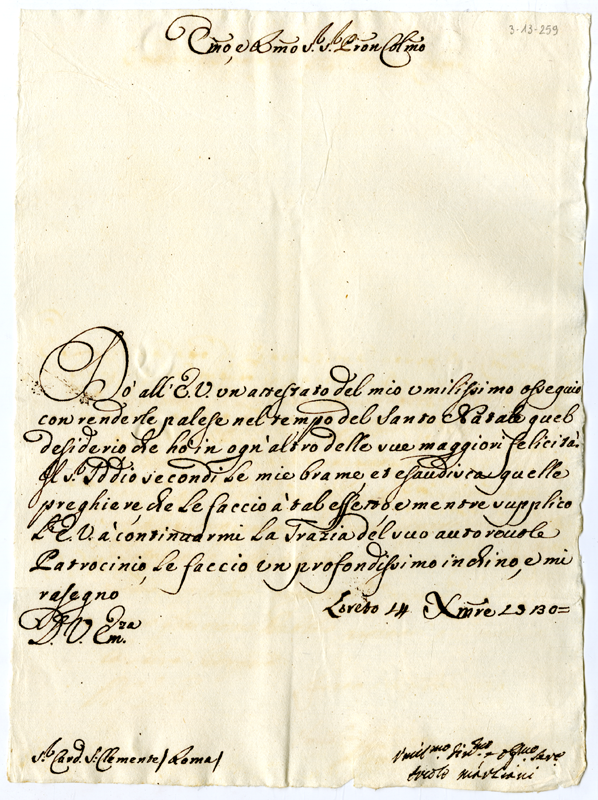 3-13-259
Em̃o, e Rm̃o Sr. Sr. Pron Colm̃o
Dò all'E.V. un attestato del mio umilissimo ossequio
con renderle palese nel tempo del Santo Natale quel
desiderio che hò in ogn'altro delle sue maggiori felicità.
Il Sr. Iddio secondi le mie brame et esaudisca quelle
preghiere, che le faccio à tal effetto e mentre supplico
L'E.V. à continuarmi la Grazia del suo autorevole
Patrocinio, le faccio un profondissimo inchino, e mi
rasegno
Loreto 14 Xm̃re
D. V. Em.za
Sr. Card. S. Clemente / Roma /
Umil.mo Div.mo e Obl.mo Serv.